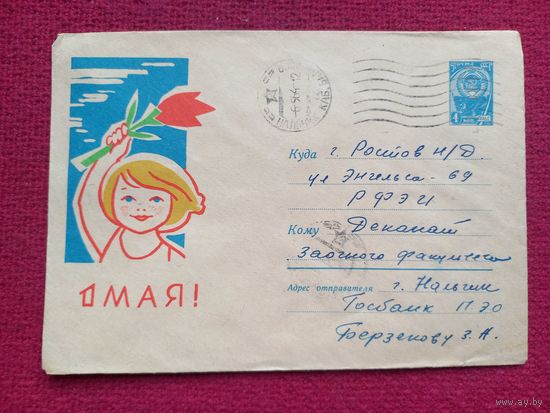 Куда г. Ростов н/Д.
ул Энгельса - 69
РФЭИ
Кому Деканат
Заочного факультета
Адрес отправителя г. Нальчик
Госбанк П.ЭО
Берзекову З. А.
1 МАЯ!
4
www.ay.by